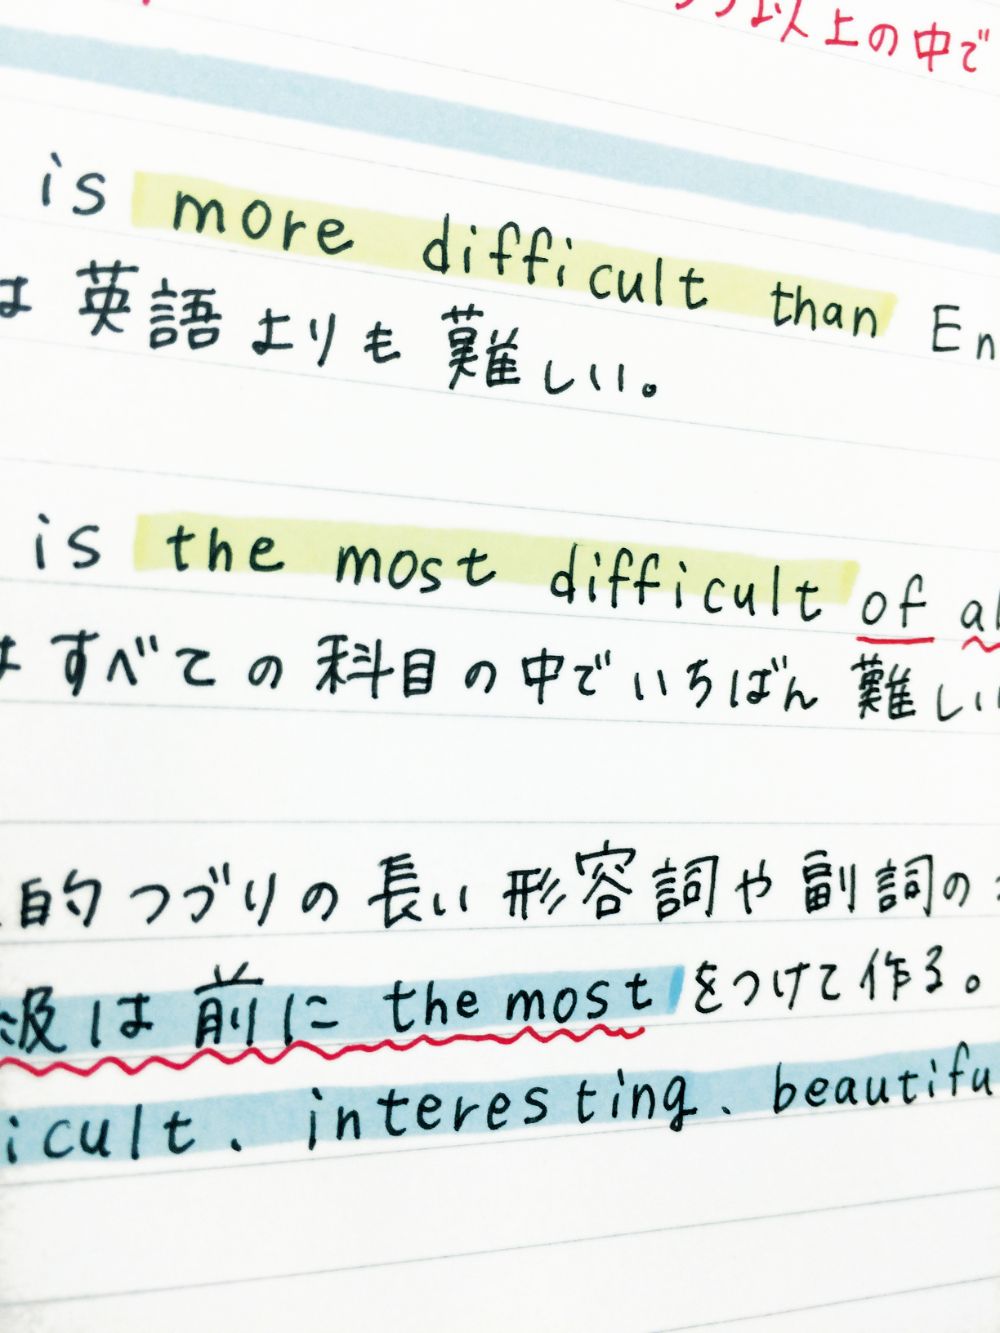 以上の中で
is more difficult than En
は 英語よりも 難しい。
is the most difficult of al
はすべての科目の中でいちばん難しい
的つづりの長い形容詞や副詞の
級は前に the most をつけて作る。
icult. interesting. beautifu